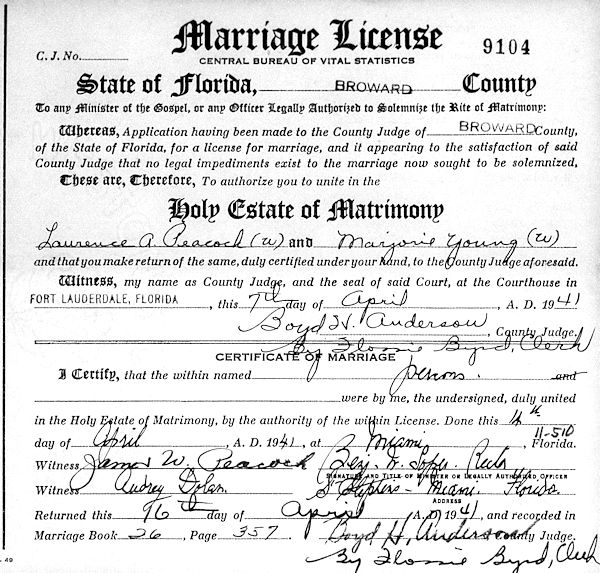 Marriage License
9104
C. J. No.
CENTRAL BUREAU OF VITAL STATISTICS
State of Florida, BROWARD County
To any Minister of the Gospel, or any Officer Legally Authorized to Solemnize the Rite of Matrimony:
Whereas, Application having been made to the County Judge of BROWARD County,
of the State of Florida, for a license for marriage, and it appearing to the satisfaction of said
County Judge that no legal impediments exist to the marriage now sought to be solemnized,
These are, Therefore, To authorize you to unite in the
Holy Estate of Matrimony
Laurence A. Peacock (W) and Marjorie Young (W)
and that you make return of the same, duly certified under your hand, to the County Judge aforesaid.
Witness, my name as County Judge, and the seal of said Court, at the Courthouse in
FORT LAUDERDALE, FLORIDA, this 7th day of April, A. D. 1941
Boyd H. Anderson, County Judge.
By Flossie Byrd, Clerk
CERTIFICATE OF MARRIAGE
I Certify, that the within named persons. and
were by me, the undersigned, duly united
in the Holy Estate of Matrimony, by the authority of the within License. Done this
11-510
day of April, A. D. 1941, at Miami, Florida.
Witness James W. Peacock Rector
SIGNATURE AND TITLE OF MINISTER OR LEGALLY AUTHORIZED OFFICER
Witness Audrey Dolan Stephens - Miami, Florida
ADDRESS
Returned this 16th day of April A. D. 1941, and recorded in
Marriage Book 26, Page 357. Boyd H. Anderson County Judge.
By Flossie Byrd, Clerk
49